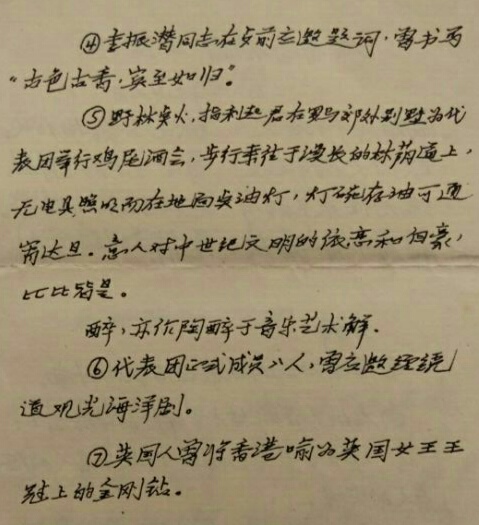 ④李振潜同志在与前应邀题词,曾书写
“古色古香,宾至如归”。
⑤野林奕火,指利起君在罗马郊外别墅为代
表团举行鸡尾酒会,步行来往于漫长的林荫道上,
无电具照明而在地面奕油灯,灯碗存油可通
宵达旦。意人对中世纪文明的依恋和自豪,
比比皆是。
醉,亦作陶醉于音乐艺术解.
⑥代表团正式成员八人,曾应邀绕
道观光海洋剧。
⑦英国人曾将香港喻为英国女王王
冠上的金刚钻。